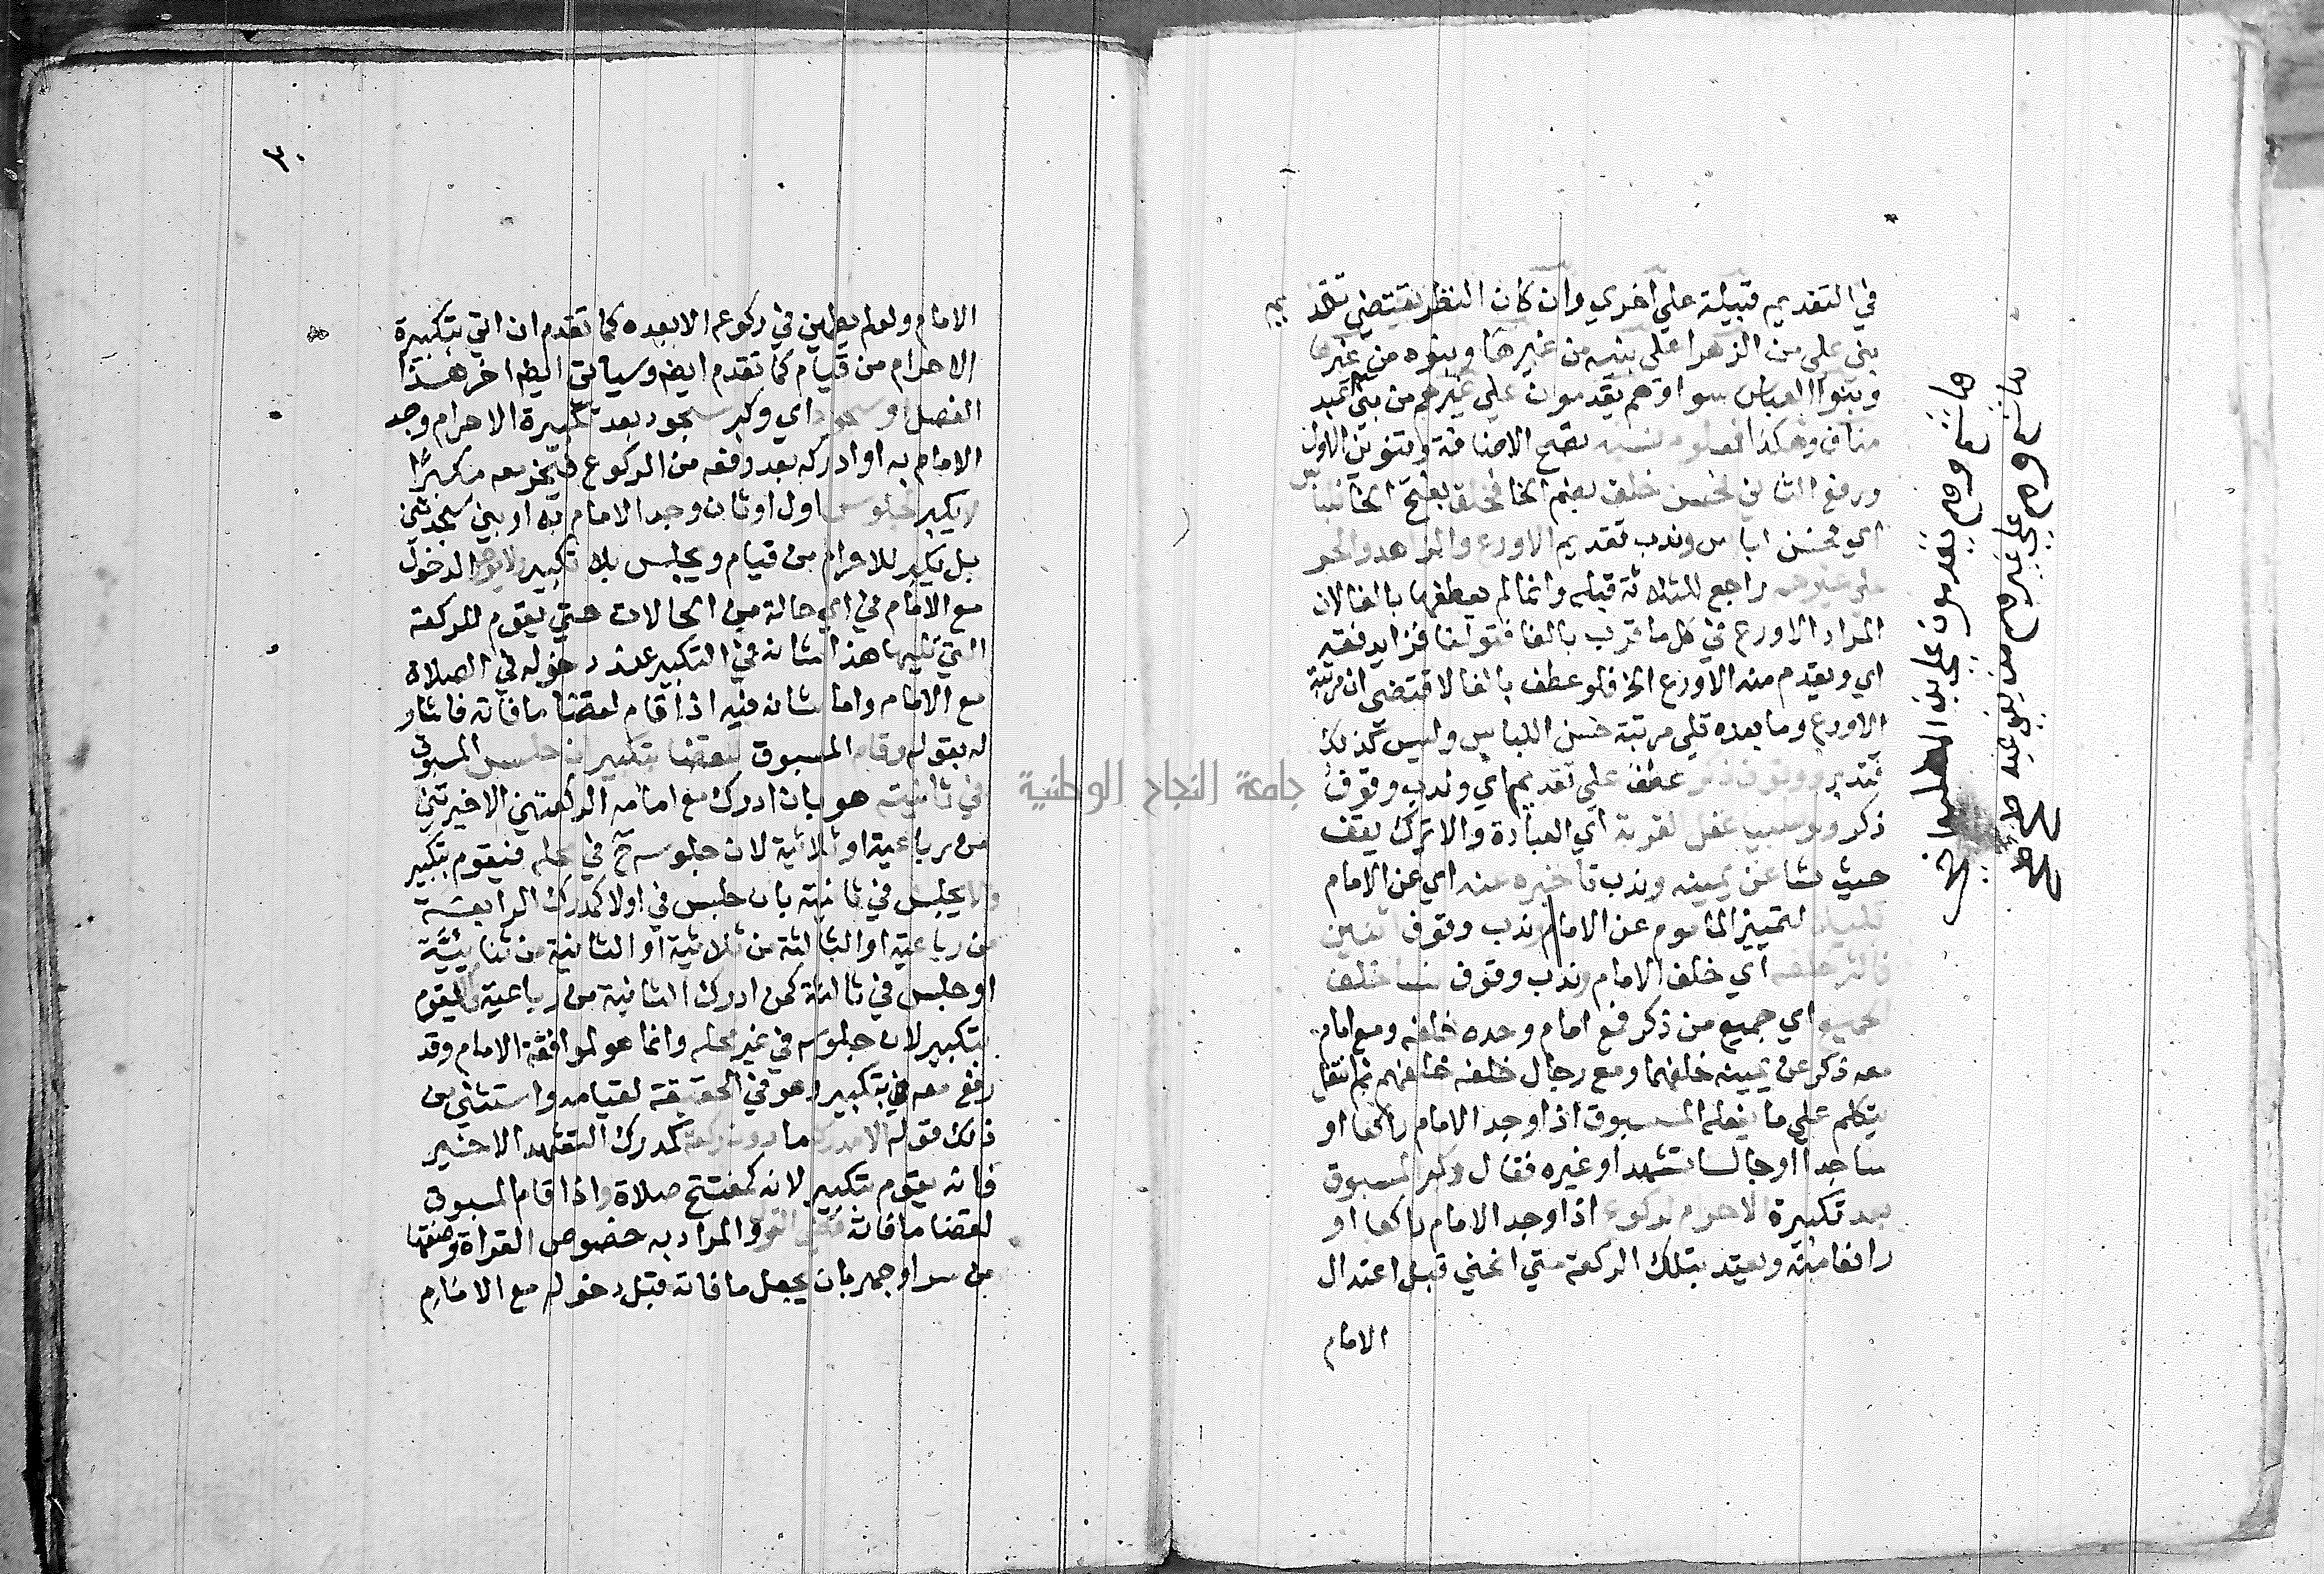 في التقديم قبيلة علي اخري وان كان النظر يقتضي تقد
يم
بني علي من الزهرا علي بنيه من غيرها وبنوه من غيرها
وبنوا العباس سوا وهم يقدمون علي غيرهم من بني عبد
مناف وهكذا بفتح الاضافة وتنوين الاول
ورفع الثاني فحسن خلق بضم الخا فخلق بفتح الخا فلباس
اي فحسن لباس وندب تقديم الاورع والزاهد والحر
علي غيرهم راجع للثلاثة قبله وانما لم يعطفها بالفا لان
المراد الاورع في كل ما قرب بالفا فقولنا فزايد فقه
اي ويقدم منه الاورع الخ فلو عطف بالفا لاقتضي ان مرتبة
الاورع وما بعده تلي مرتبة حسن اللباس وليس كذلك
فتدبر ووقوف ذكر عطف علي تقديم اي وندب وقوف
ذكر ولو صبيا عقل القربة اي العبادة والا ترك يقف
حيث شا عن يمينه وندب تاخيره عنه اي عن الامام
قليلا لتمييز الماموم عن الامام وندب وقوف اثنين
فاكثر خلفه اي خلف الامام وندب وقوف نسا خلف
الجميع اي جميع من ذكر فمع امام وحده خلفه ومع امام
معه ذكر عن يمينه خلفهما ومع رجال خلفه خلفهم ثم انتقل
يتكلم علي ما يفعله المسبوق اذا وجد الامام راكعا او
ساجدا او جالسا لتشهد او غيره فقال وكبر المسبوق
بعد تكبيرة الاحرام لركوع اذا وجد الامام راكعا او
رافعا منه ويعتد بتلك الركعة متي انحني قبل اعتدال
الامام
جامعة النجاح الوطنية
٣٠
الامام ولو لم يطمين في ركوعه الا بعده كما تقدم ان اتي بتكبيرة
الاحرام من قيام كما تقدم ايضه وسياتي ايضه اخر هذا
الفصل او سجود اي وكبر سجود بعد تكبيرة الاحرام وجد
الامام به او ادركه بعد رفعه من الركوع فيخر معه مكبرا
لا يكبر لجلوس اول او ثان وجد الامام به او بين سجدتين
بل يكبر للاحرام من قيام ويجلس بلا تكبير ولا يوخر الدخول
مع الامام في اي حالة من الحالات حتي يقوم للركعة
التي تليها هذا شانه في التكبير عند دخوله في الصلاة
مع الامام واما شانه فيه اذا قام لقضا ما فاته فاشار
له بقوله وقام المسبوق للقضا بتكبير ان جلس المسبوق
في ثانيته هو بان ادرك مع امامه الركعتين الاخيرتين
من رباعية او ثلاثية لان جلوسه ح في محله فيقوم بتكبير
والا يجلس في ثانيته بان جلس في اولا كمدرك الرابعة
من رباعية او الثالثة من ثلاثية او الثانية من ثنائية
او جلس في ثالثة كمن ادرك الثانية من رباعية فلا يقوم
بتكبير لان جلوسه في غير محله وانما هو لموافقة الامام وقد
رفع معه بتكبير وهو في الحقيقة لقيامه واستثني من
ذلك قوله الا مدرك ما دون ركعة كمدرك التشهد الاخير
فانه يقوم بتكبير لانه كمفتتح صلاة واذا قام المسبوق
لقضا ما فاته قضي القول والمراد به خصوص القراة وصفتها
من سر او جهر بان يجعل ما فاته قبل دخوله مع الامام